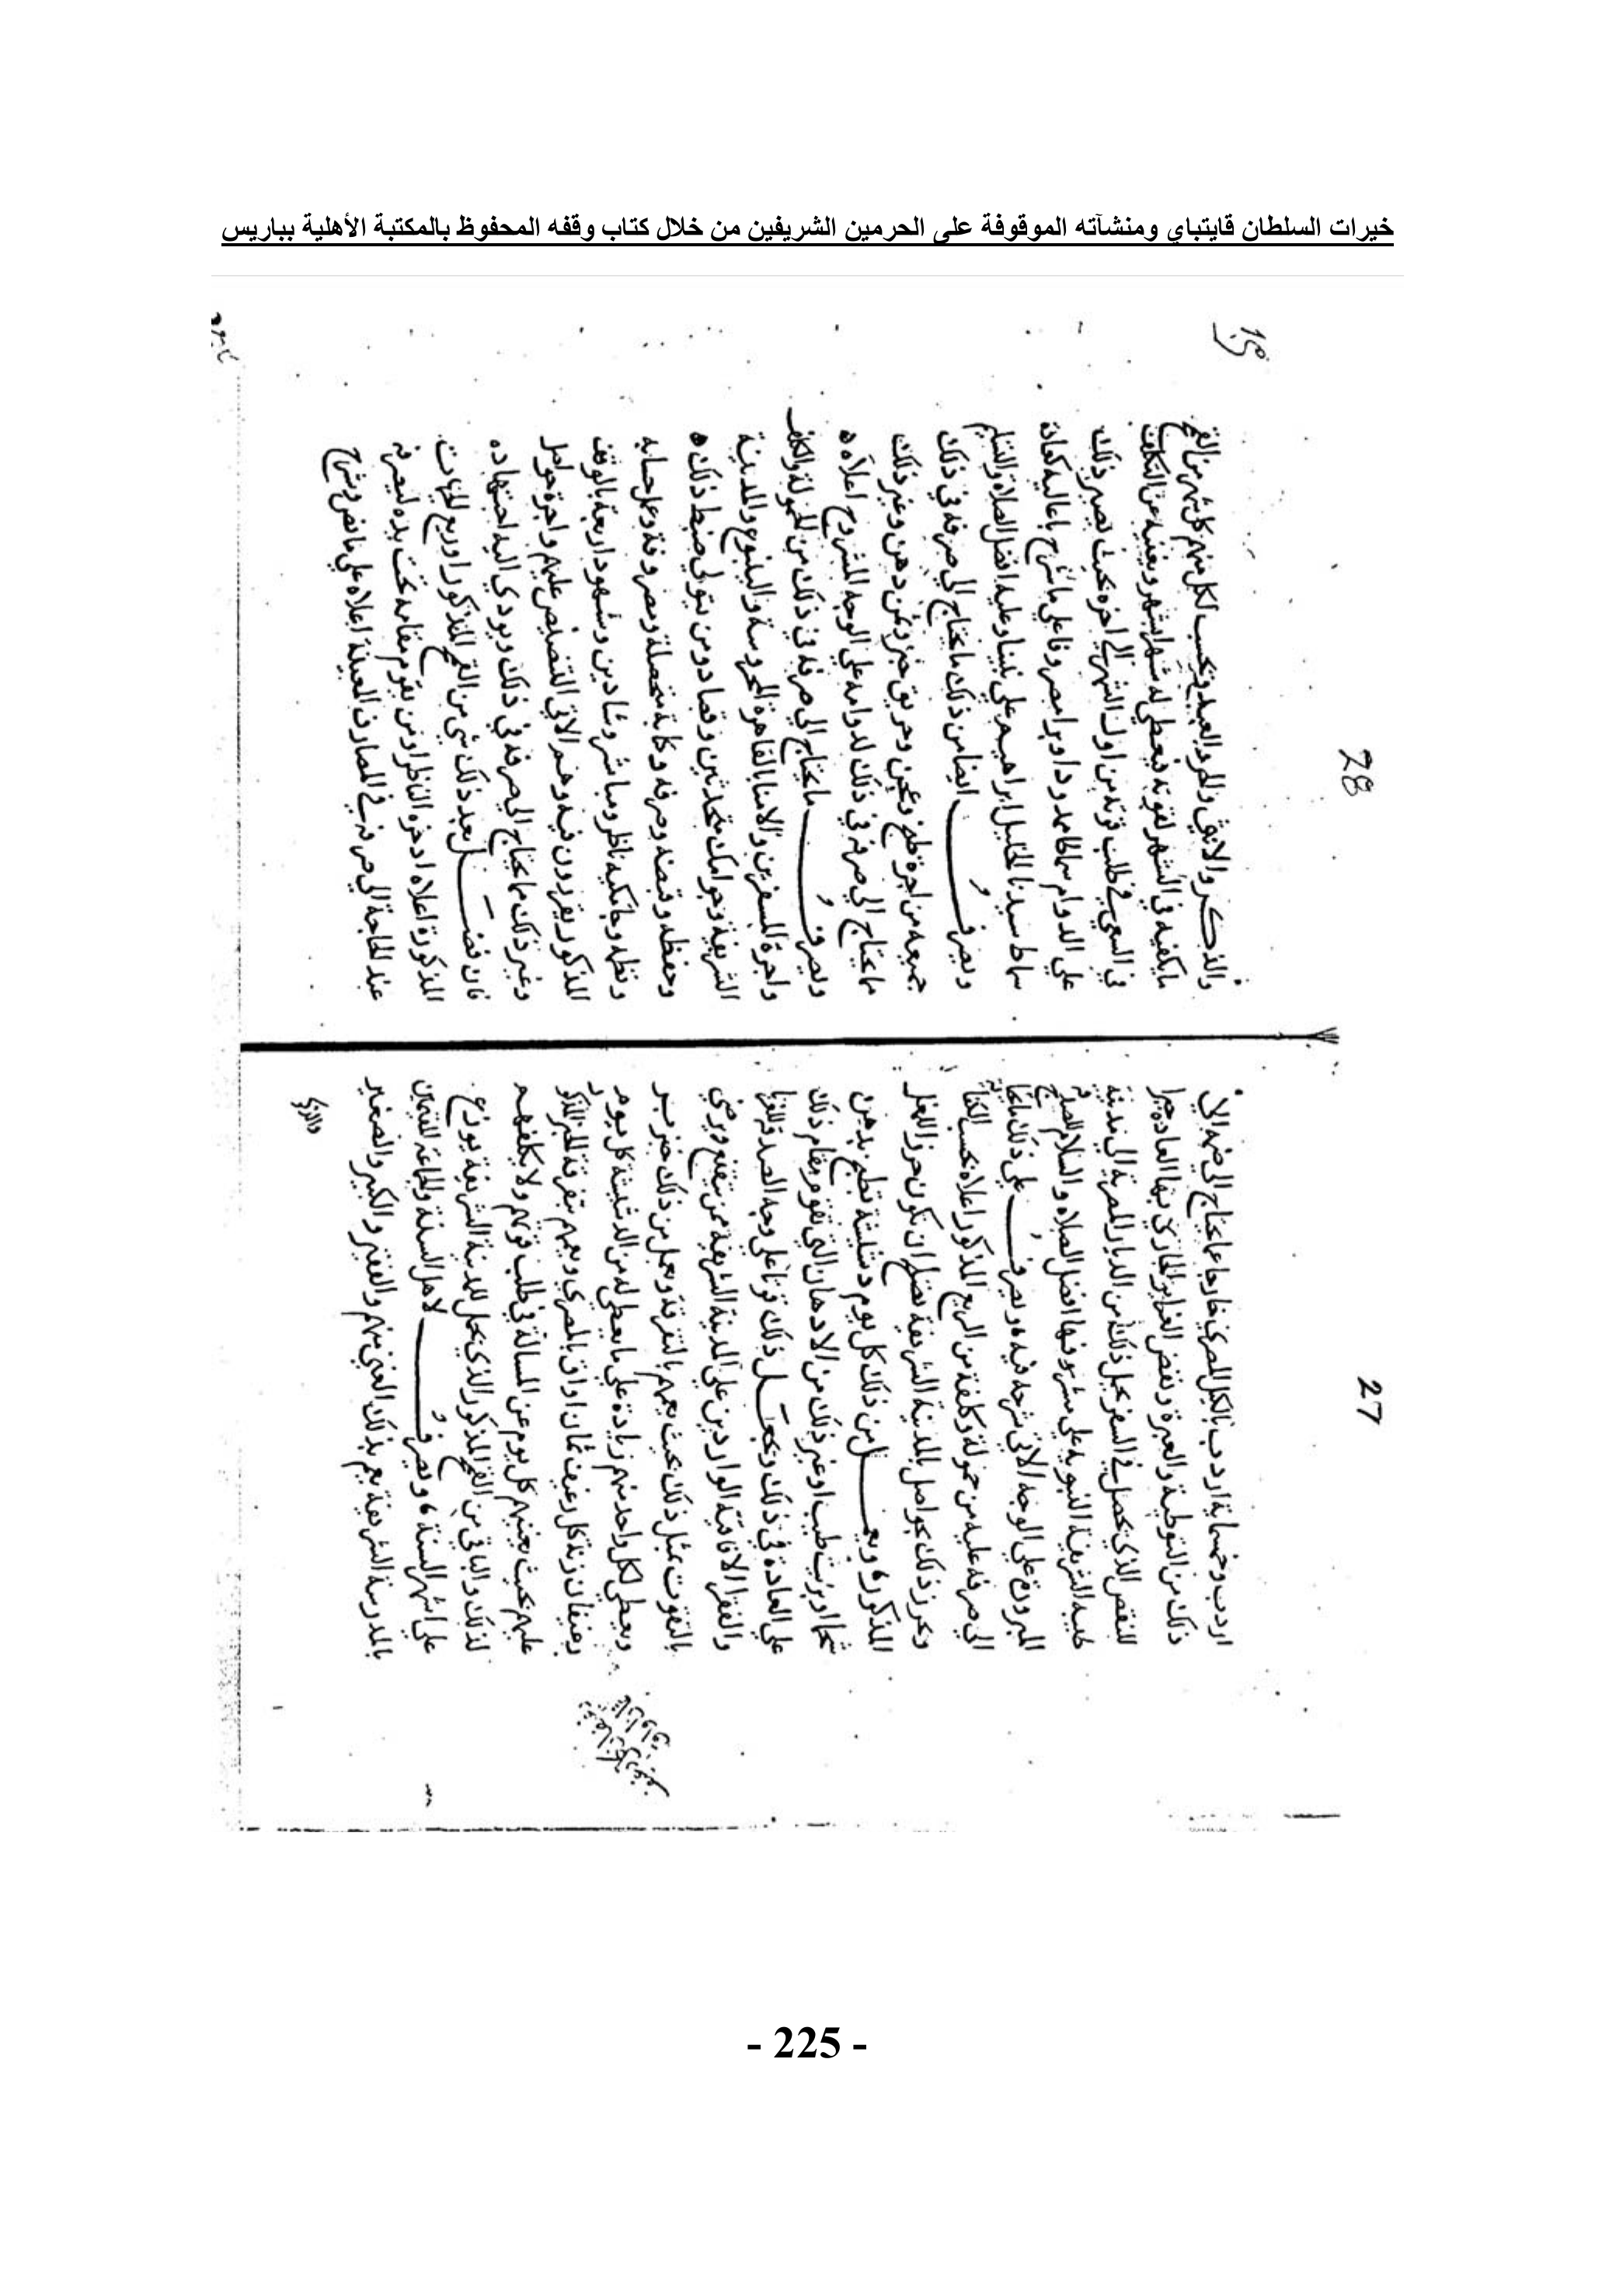 خيرات السلطان قايتباي ومنشآته الموقوفة على الحرمين الشريفين من خلال كتاب وقفه المحفوظ بالمكتبة الأهلية بباريس
27
اردب وخمسماية اردب بالكيل المصري خارجا عما يحتاج الي ضمه الي
ذلك من التوطية والعبرة ونقض الغرابيل الجاري بها العادة جبرا
للنقص الذي يحصل في السفر يحمل ذلك من الديار المصرية الي مدينة
طيبه الشريفة النبويه علي مشرفها افضل الصلاه والسلام
المبرور علي الوجه الاتي شرحه فيه ويصرف علي ذلك ما يحتاج
الي صرفه عليه من حمولة وكلفة من الريع المذكور اعلاه بحسب
ويحرز ذلك بحواصل بالمدينة الشريفة تصلح ان تكون حرزا لمثل
المذكور ويعمل من ذلك كل يوم دشيشة تطبخ بدهن
شحما او بزيت طيب او غير ذلك من الادهان التي تقوم مقام ذلك
علي العادة في ذلك ويجعل ذلك قوتا علي وجه الصدقه للفقرا
والفقرا الافاقية الواردين علي المدينة الشريفة ممن يقنع ويرضي
بالقوت بمثل ذلك بحيث يعمهم بالتفرقة ويعمل من ذلك خبز بر
ويعطي لكل واحد منهم زيادة علي ما يعطي له من الدشيشة كل يوم
رغيفان زنة كل رغيف ثمان اواق بالمصري ويعمهم بتفرقة الخبز المذكور
عليهم بحيث يغنيهم كل يوم عن المسالة في طلب قوتهم ولا يكلفهم
لذلك والباقي من القمح المذكور الذي يحمل للمدينة الشريفة يوزع
علي اشهر السنة ويصرف لاهل السنة والجماعة المقيمين
بالمدرسة الشريفة يعم بذلك الغني منهم والفقير والكبير والصغير
والذكر
28
والذكر والانثي والحر والعبد يحسب لكل منهم كل شهر من القمح
ما يكفيه في الشهر لقوته فيعطي له شهرا بشهر ويغنيه عن التكلف
في السعي في طلب قوته من اول الشهر الي اخره بحيث يصير ذلك
علي الدوام سماطا ممدودا وبرا مصروفا علي ما شرح باعاليه كعادة
سماط سيدنا الخليل ابراهيم علي نبينا وعليه افضل الصلاة والتسليم
ويصرف ايضا من ذلك ما يحتاج الي صرفه في ذلك
جميعه من اجرة طبخ وعجن وحريق خبز وثمن دهن وغير ذلك
مما يحتاج الي صرفه في ذلك لدوامه علي الوجه المشروح اعلاه
ويصرف ما يحتاج الي صرفه في ذلك من الحمولة والكلف
واجرة المسفرين والامنا بالقاهرة المحروسة والينبوع والمدينة
الشريفة وجوامك متحدثين وقصاد ومن يتولي ضبط ذلك
وحفظه وقبضه وصرفه وكتابة متحصله ومصروفه وعمل حسابه
ونظره وجامكية ناظر ومباشر وشادين وشهود اربعة بالوقف
المذكور يقررون فيه وهم الاتي التنصيص عليهم واجرة حواصل
وغير ذلك مما يحتاج الي صرفه في ذلك ويودي اليه اجتهاده
فان فضل بعد ذلك شي من القمح المذكور او ريع الجهات
المذكورة اعلاه ادخره الناظر او من يقوم مقامه تحت يده ليصرفه
عند الحاجة الي صرفه في المصارف المعينة اعلاه علي ما نص وشرح
- 225 -